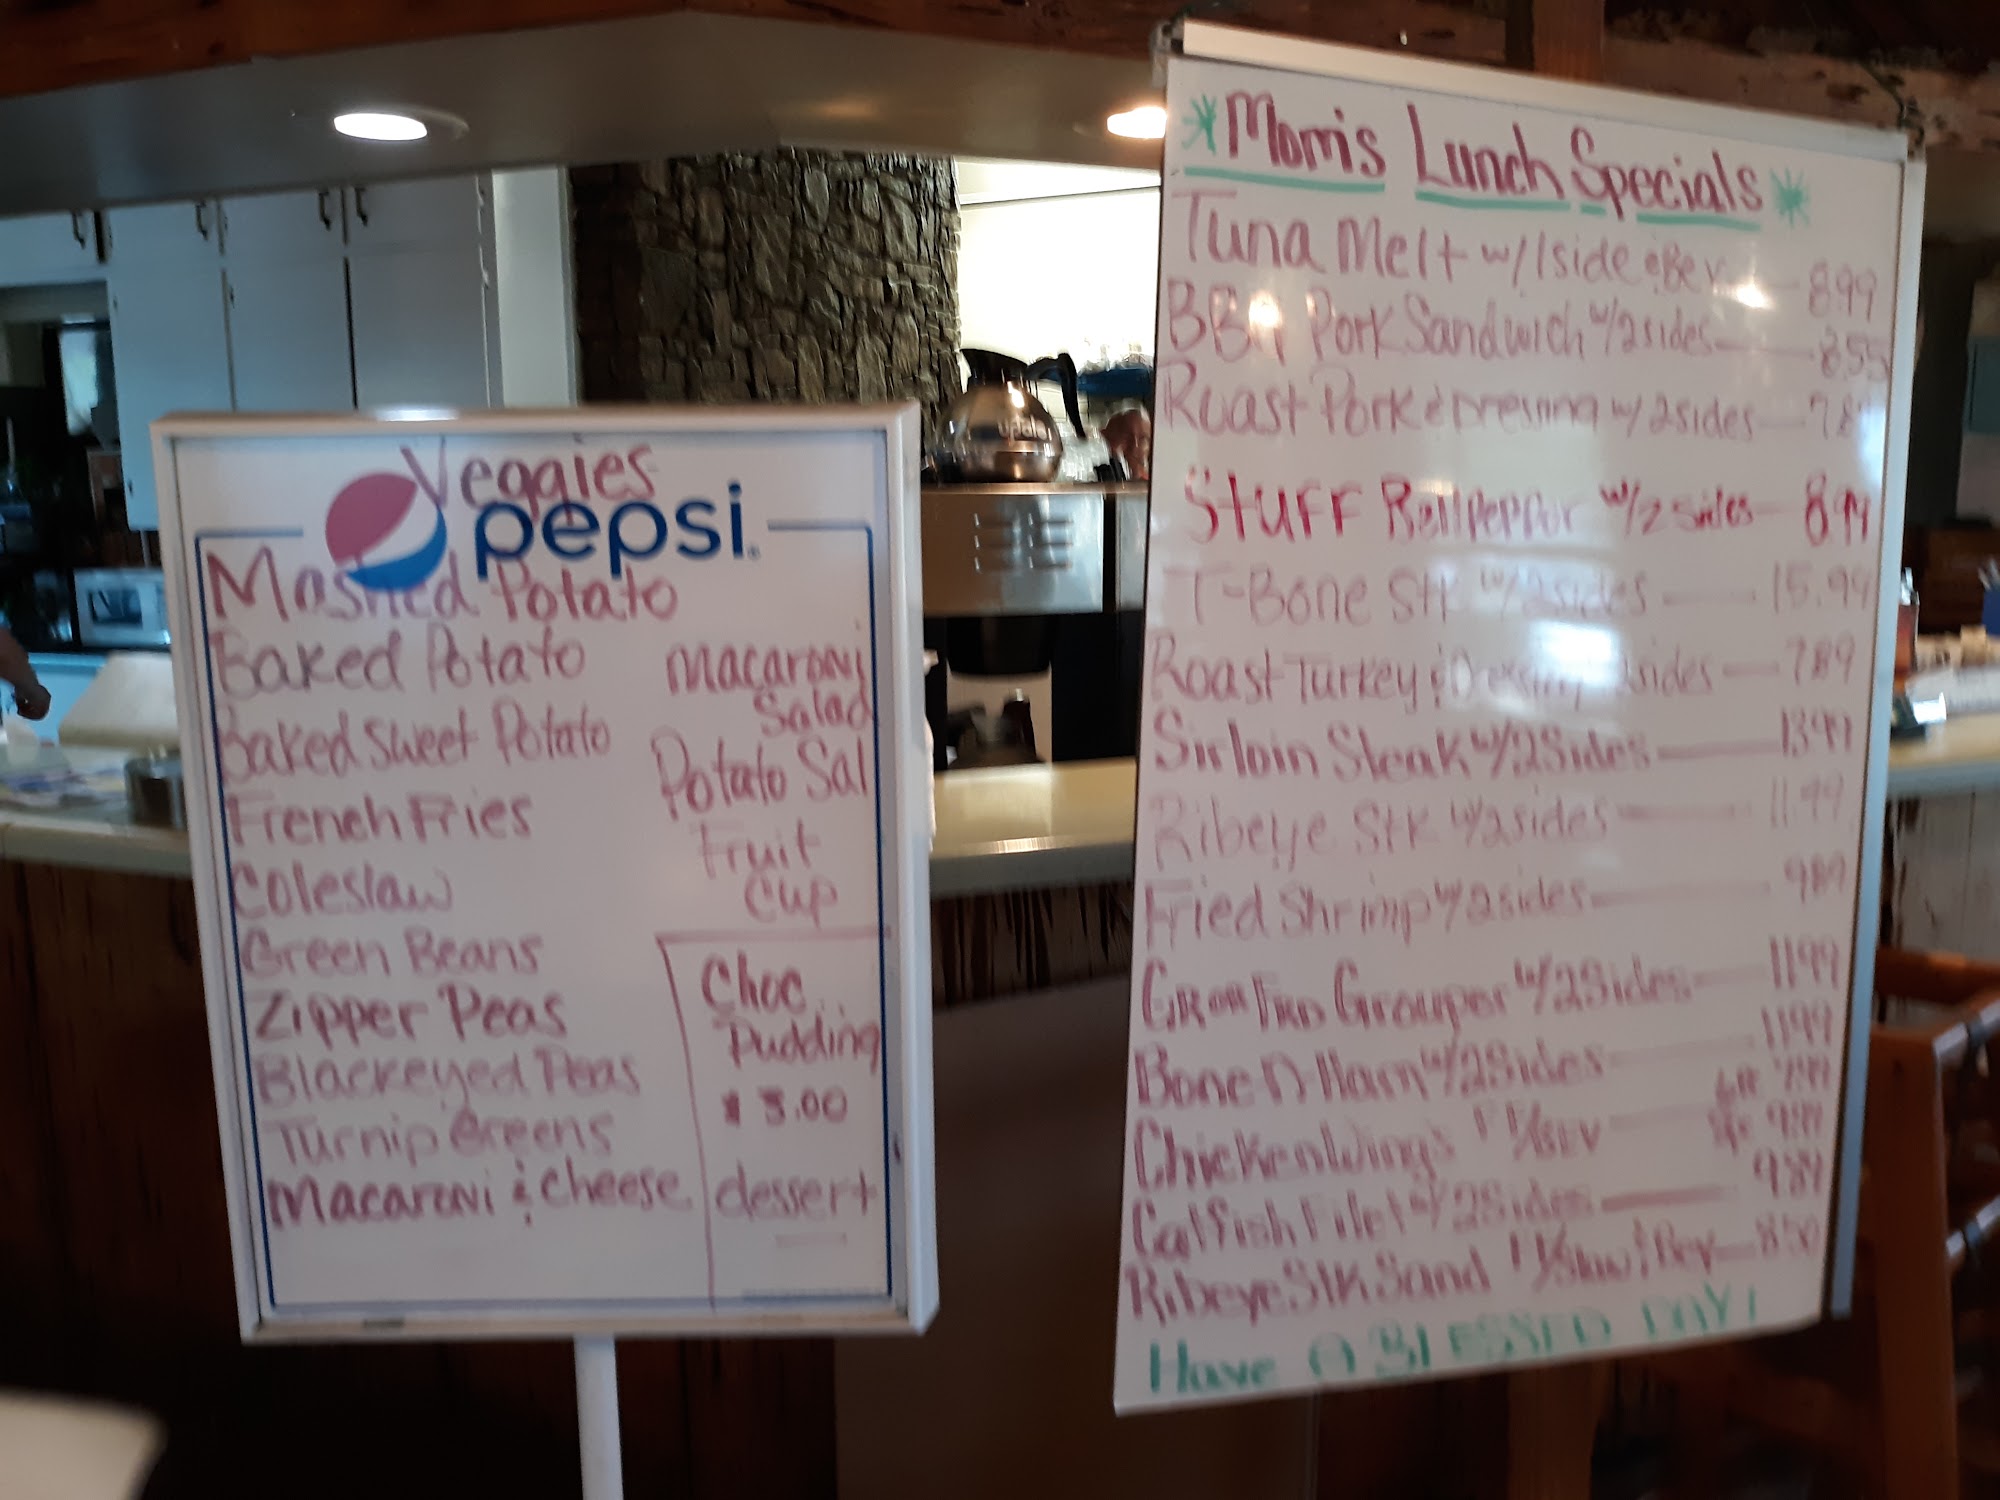 Veggies
pepsi
Mashed Potato
Baked Potato
Baked Sweet Potato
French Fries
Coleslaw
Green Beans
Zipper Peas
Blackeyed Peas
Turnip Greens
Macaroni & Cheese
Macaroni
Salad
Potato Sal
Fruit
Cup
Choc..
Pudding
$ 3.00
dessert
Mom's Lunch Specials
Tuna Melt w/1side & Bev — 8.99
BBQ Pork Sandwich w/2sides — 8.55
Roast Pork & Dressing w/2sides — 7.89
STUFF Bellpepper w/2 sides — 8.99
T-Bone Stk w/2sides — 15.99
Roast Turkey & Dressing 2sides — 7.89
Sirloin Steak w/2Sides — 13.99
Ribeye Stk w/2sides 11.99
Fried Shrimp w/2sides — 9.89
GR or FRD Grouper w/2Sides — 11.99
Bone N Ham w/2Sides — 11.99
Chickenwings FF/BEV — 7.99
9.99
Catfish Filet w/2Sides — 9.89
Ribeye Stk Sand w/Slaw & Bev — 8.50
Have A BLESSED DAY!